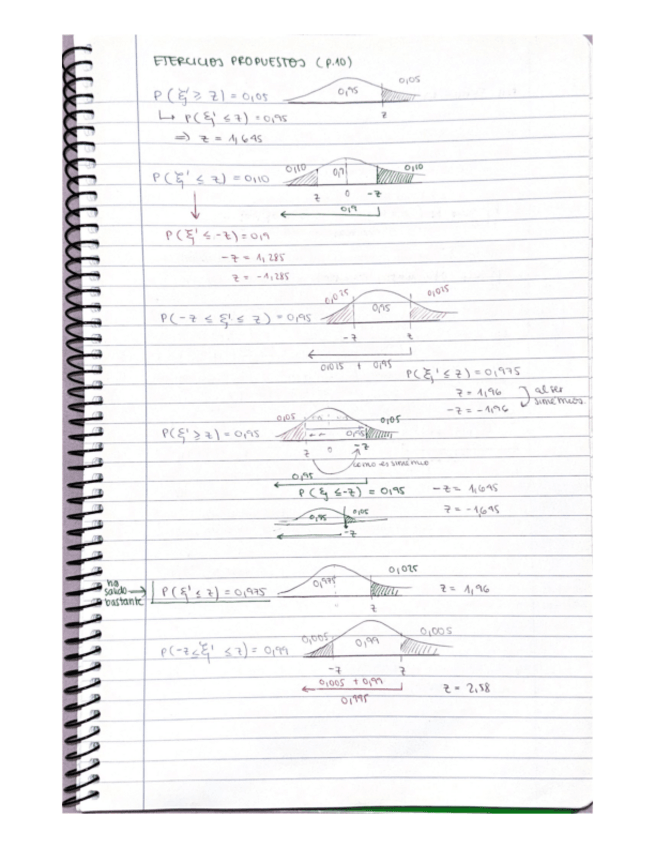 EJERCICIOS PROPUESTOS (P.10)
P(ξ' ≥ z) = 0,05
0,95 0,05
z
↳ P(ξ' ≤ z) = 0,95
⇒ z = 1,645
P(ξ' ≤ z) = 0,10
0,10 0,10
z 0 -z
0,9
P(ξ' ≤ -z) = 0,9
-z = 1,285
z = -1,285
0,025 0,95 0,025
P(-z ≤ ξ' ≤ z) = 0,95
-z z
0,025 + 0,95
P(ξ' ≤ z) = 0,975
z = 1,96
-z = -1,96
al ser simétricos
0,05 0,05
P(ξ' ≥ z) = 0,95
z 0 -z
como es simétrico
0,95
P(ξ ≤ -z) = 0,95 -z = 1,645
z = -1,645
0,95 0,05
-z
ha salido bastante →
P(ξ' ≤ z) = 0,975
0,975 0,025
z = 1,96
z
P(-z ≤ ξ' ≤ z) = 0,99
0,005 0,99 0,005
-z z
0,005 + 0,99
0,995
z = 2,58